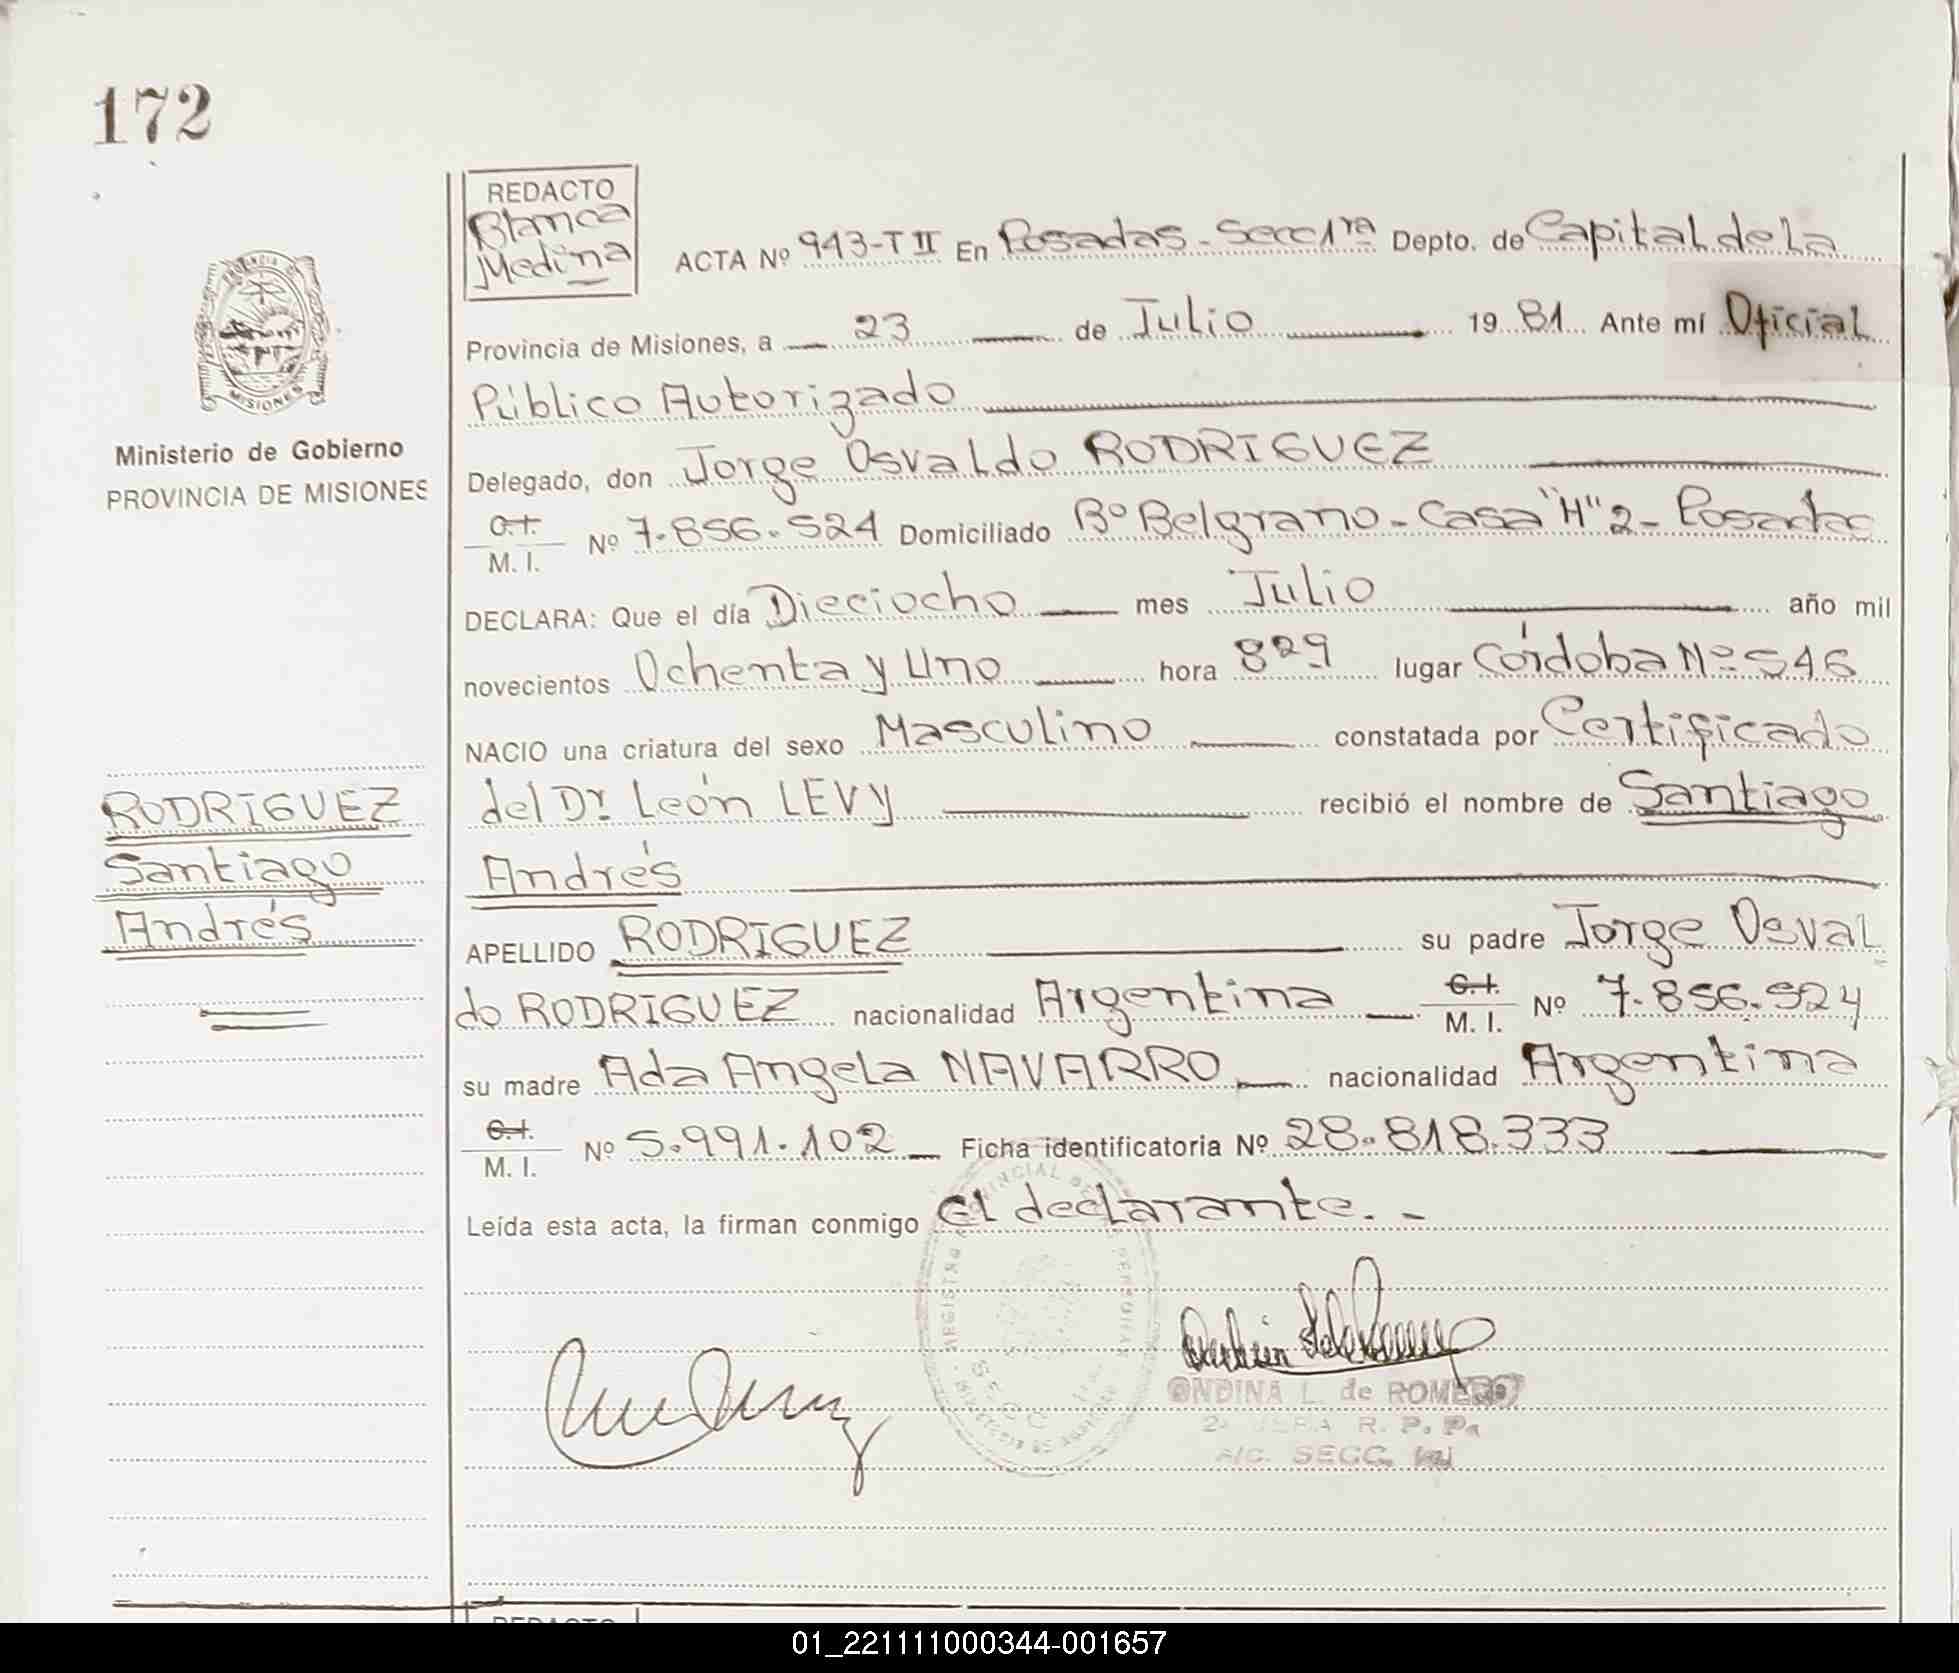 172
REDACTO
Blanca
Medina
ACTA Nº 943-T II En Posadas - Secc 1ra Depto. de Capital de la
Provincia de Misiones, a 23 de Julio 1981 Ante mí Oficial
Público Autorizado
Delegado, don Jorge Osvaldo RODRIGUEZ
C.I.
M. I. Nº 7.856.524 Domiciliado Bº Belgrano - Casa "H" 2 - Posadas
DECLARA: Que el día Dieciocho mes Julio año mil
novecientos Ochenta y Uno hora 829 lugar Córdoba Nº 546
NACIO una criatura del sexo Masculino constatada por Certificado
del Dr. León LEVY recibió el nombre de Santiago
Andrés
APELLIDO RODRIGUEZ su padre Jorge Osval
do RODRIGUEZ nacionalidad Argentina C.I. M. I. Nº 7.856.524
su madre Ada Angela NAVARRO nacionalidad Argentina
C.I.
M. I. Nº 5.991.102 Ficha identificatoria Nº 28.818.333
Leída esta acta, la firman conmigo El declarante. -
MISIONES
Ministerio de Gobierno
PROVINCIA DE MISIONES
RODRIGUEZ
Santiago
Andrés
ONDINA L. de ROMERO
R. P. P.
A/C. SECC.
REDACTO
01_221111000344-001657